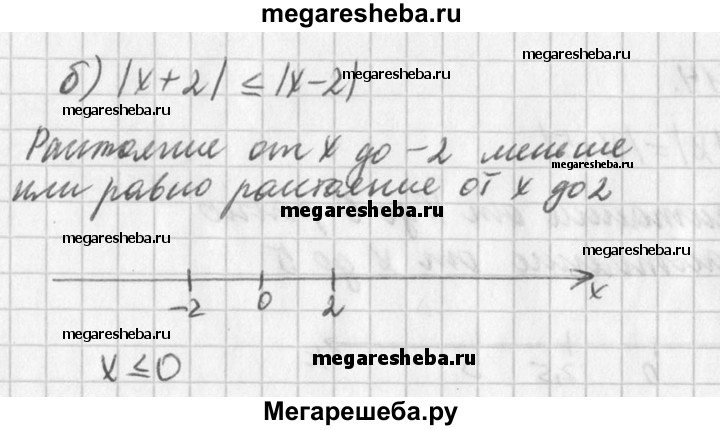 megaresheba.ru
б) |x+2| ≤ |x-2|
megaresheba.ru
megaresheba.ru
Расстояние от x до -2 меньше
megaresheba.ru
или равно расстояние от x до 2
megaresheba.ru
megaresheba.ru
megaresheba.ru
-2 0 2 x
megaresheba.ru
megaresheba.ru
x ≤ 0
Мегарешеба.ру